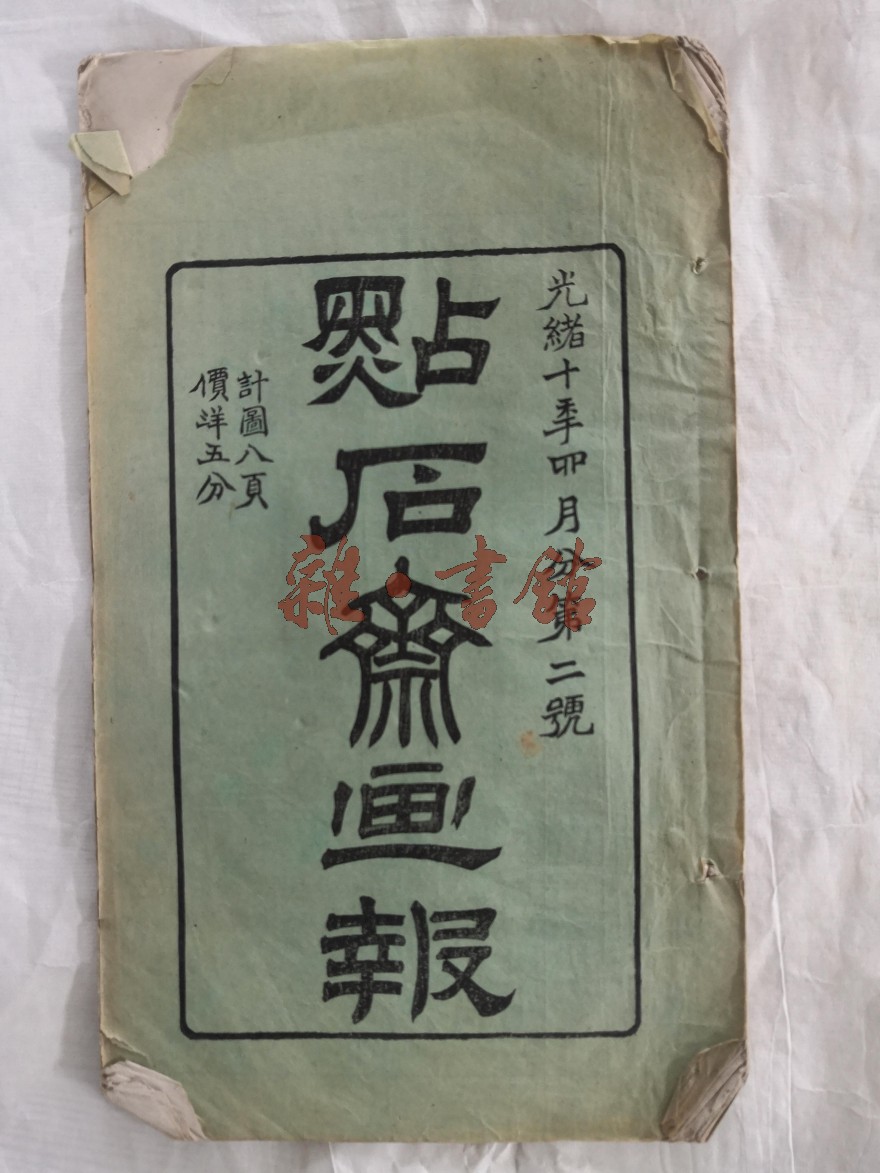 光緒十年四月分第二號
點石齋画報
計圖八頁
價洋五分
雜·書館